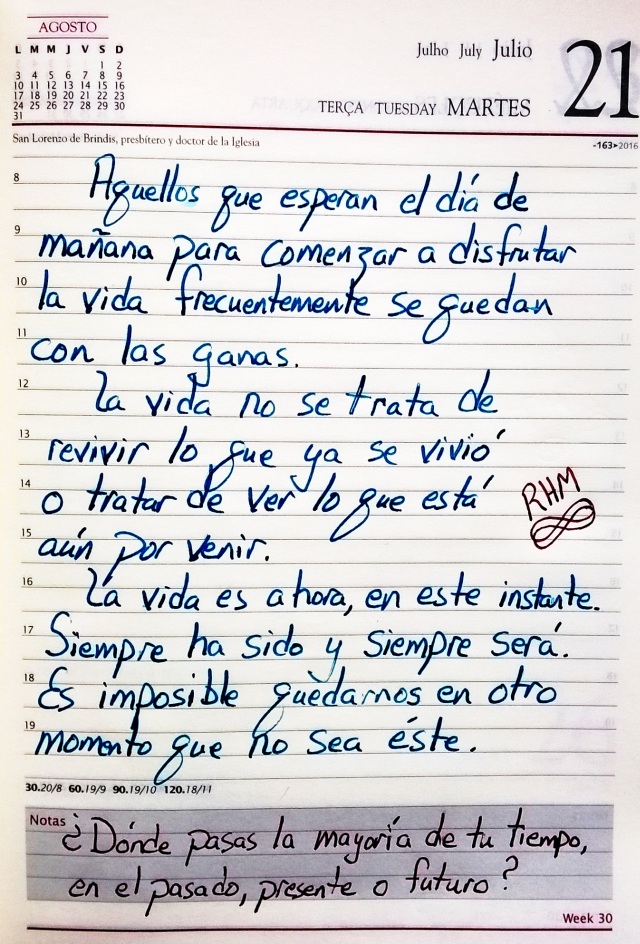 AGOSTO
L M M J V S D
1 2
3 4 5 6 7 8 9
10 11 12 13 14 15 16
17 18 19 20 21 22 23
24 25 26 27 28 29 30
31
Julho July Julio 21
TERÇA TUESDAY MARTES
San Lorenzo de Brindis, presbítero y doctor de la Iglesia
-163▸2016
8 Aquellos que esperan el día de
9 mañana para comenzar a disfrutar
10 la vida frecuentemente se quedan
11 con las ganas.
12 La vida no se trata de
13 revivir lo que ya se vivió
14 o tratar de ver lo que está
RHM
15 aún por venir.
16 La vida es ahora, en este instante.
17 Siempre ha sido y siempre será.
18 Es imposible quedarnos en otro
19 momento que no sea éste.
30.20/8 60.19/9 90.19/10 120.18/11
Notas ¿Dónde pasas la mayoría de tu tiempo,
en el pasado, presente o futuro?
Week 30